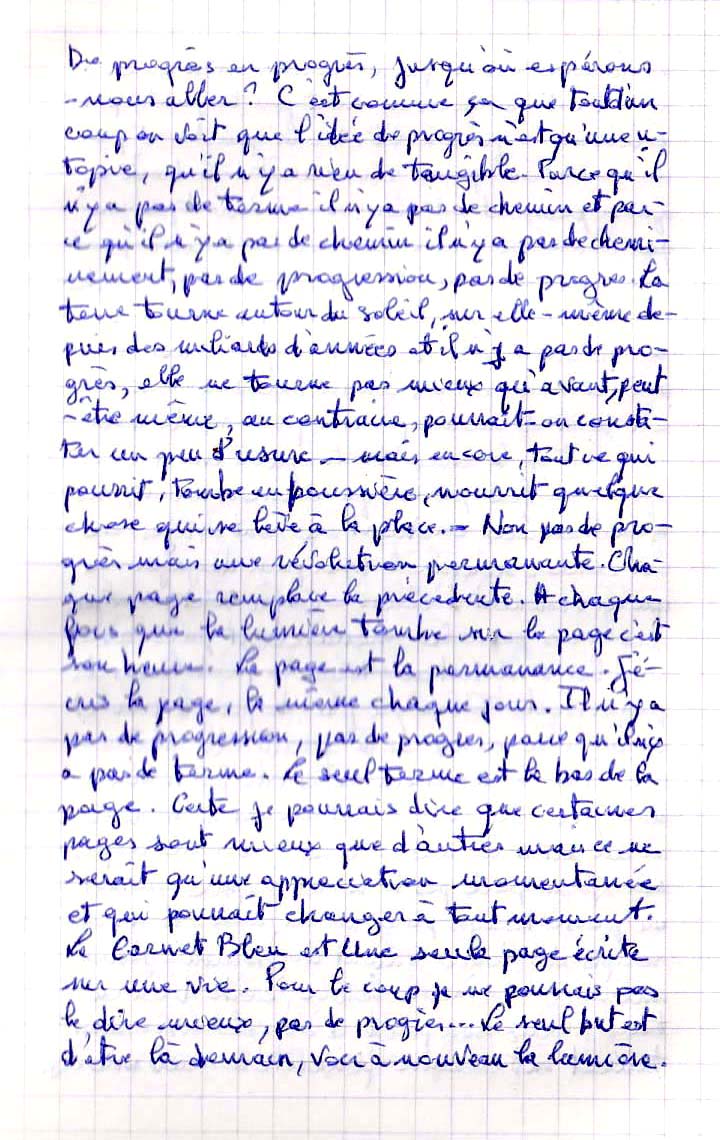 De progrès en progrès, jusqu'où espérons
-nous aller ? C'est comme ça que tout d'un
coup on voit que l'idée de progrès n'est qu'une u-
topie, qu'il n'y a rien de tangible. Parce qu'il
n'y a pas de terme il n'y a pas de chemin et par-
ce qu'il n'y a pas de chemin il n'y a pas de chemi-
nement, pas de progression, pas de progrès. La
terre tourne autour du soleil, sur elle-même de-
puis des milliards d'années et il n'y a pas de pro-
grès, elle ne tourne pas mieux qu'avant, peut
-être même, au contraire, pourrait-on consta-
ter un peu d'usure – mais encore, tout ce qui
pourrit, tombe en poussière, nourrit quelque
chose qui se lève à la place. – Non pas de pro-
grès mais une révolution permanante. Cha-
que page remplace la précédente. A chaque
fois que la lumière tombe sur la page c'est
son heure. La page est la permanance. J'é-
cris la page, la même chaque jour. Il n'y a
pas de progression, pas de progrès, parce qu'il n'y
a pas de terme. Le seul terme est le bas de la
page. Certe je pourrais dire que certaines
pages sont mieux que d'autres mais ce ne
serait qu'une appréciation momentanée
et qui pourrait changer à tout moment.
Le Carnet Bleu est Une seule page écrite
sur une vie. Pour le coup je ne pourrais pas
le dire mieux, pas de progrès... Le seul but est
d'être là demain, voir à nouveau la lumière.